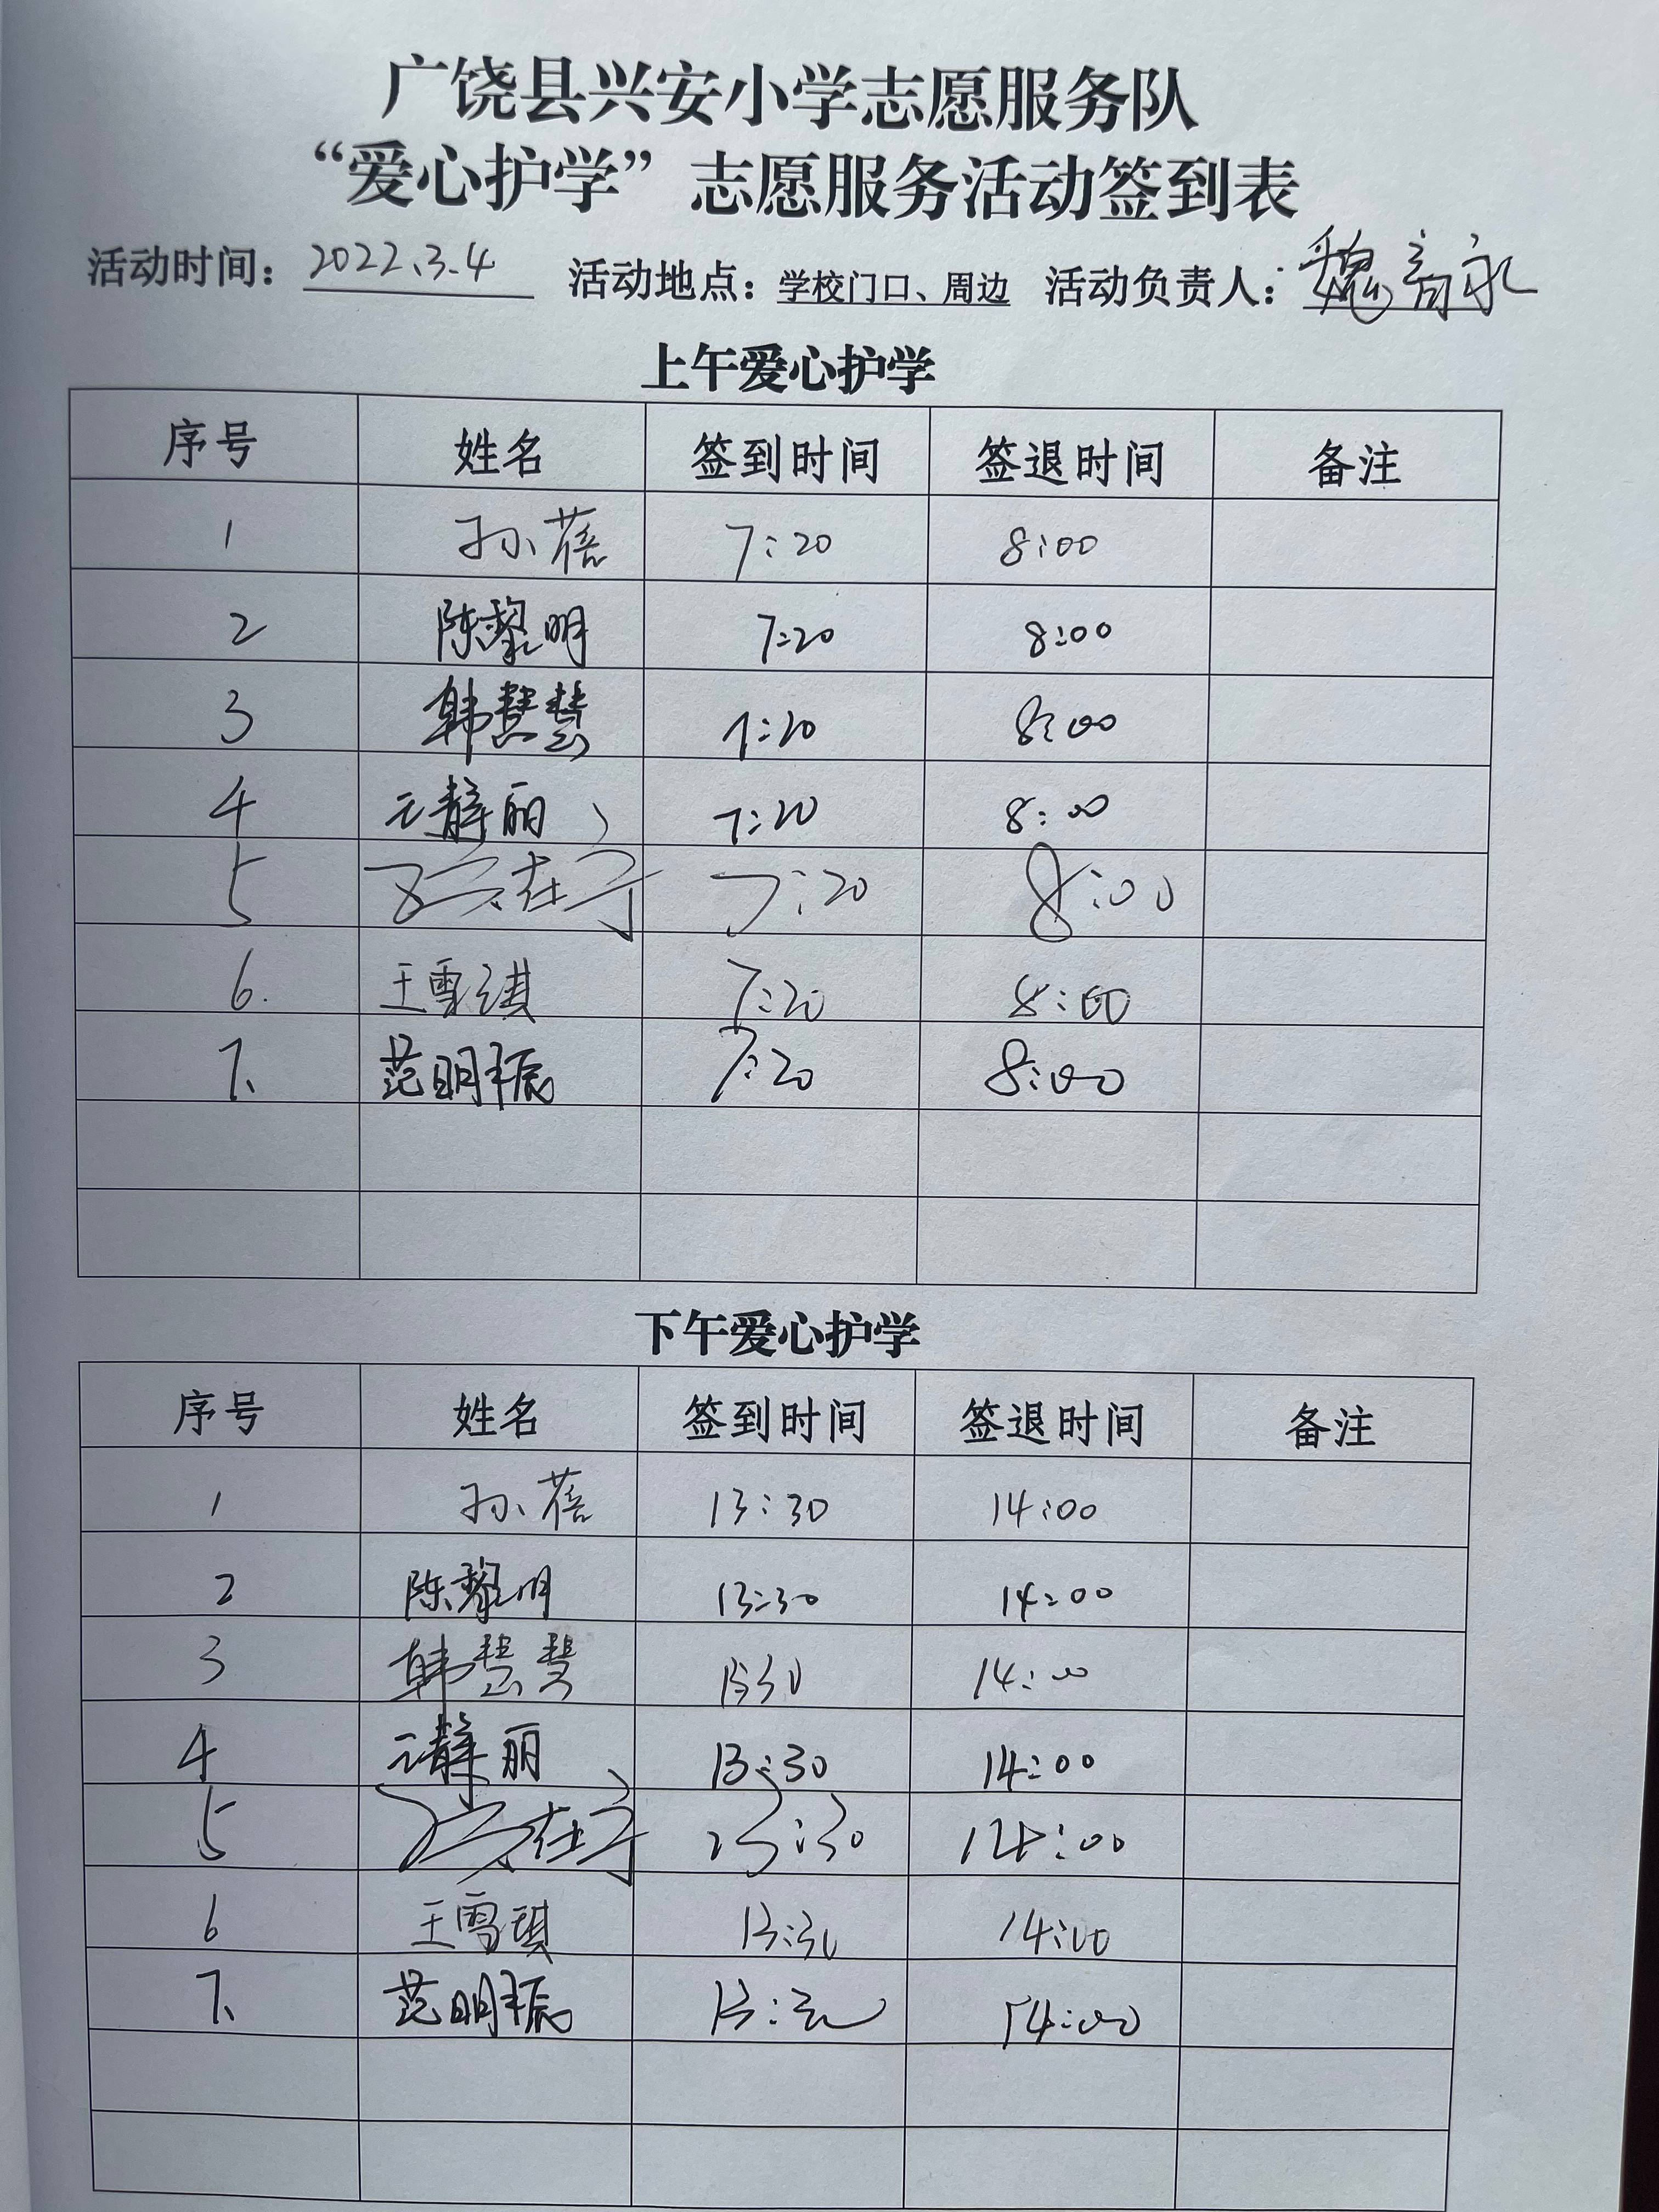 广饶县兴安小学志愿服务队
“爱心护学”志愿服务活动签到表
活动时间：2022.3.4 活动地点：学校门口、周边 活动负责人：魏
上午爱心护学
序号 姓名 签到时间 签退时间 备注
1 孙蓓 7:20 8:00
2 陈黎明 7:20 8:00
3 韩慧慧 7:20 8:00
4 元静丽 7:20 8:00
5 7:20 8:00
6. 王雪琪 7:20 8:00
7、 范明振 7:20 8:00
下午爱心护学
序号 姓名 签到时间 签退时间 备注
1 孙蓓 13:30 14:00
2 陈黎明 13:30 14:00
3 韩慧慧 13:30 14:00
4 元静丽 13:30 14:00
5 13:30 14:00
6 王雪琪 13:30 14:00
7、 范明振 13:30 14:00